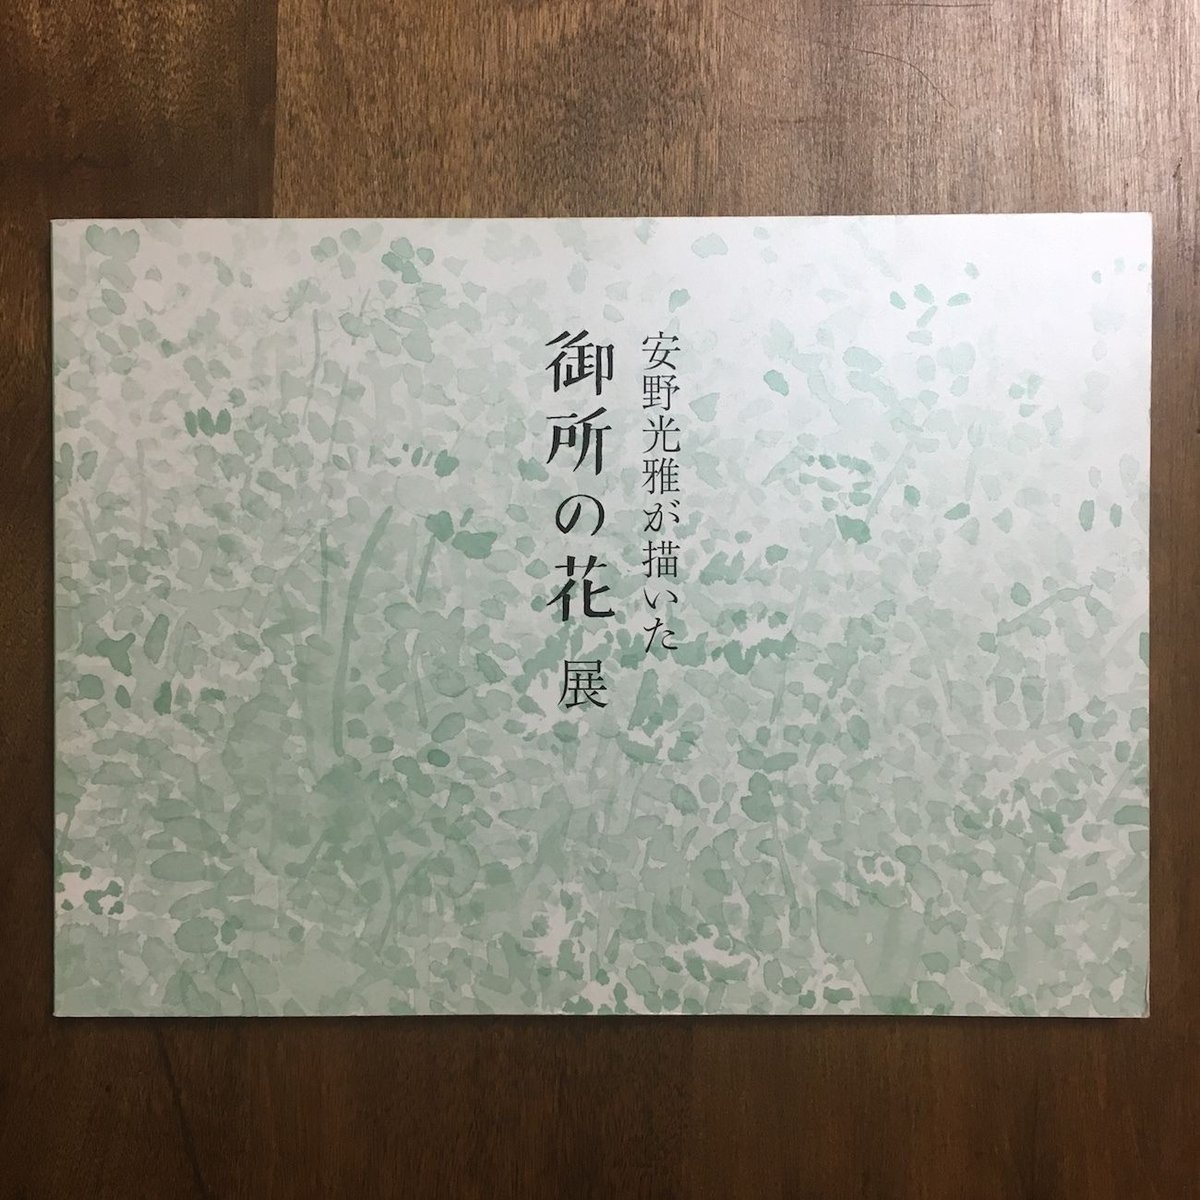 安野光雅が描いた
御所の花展